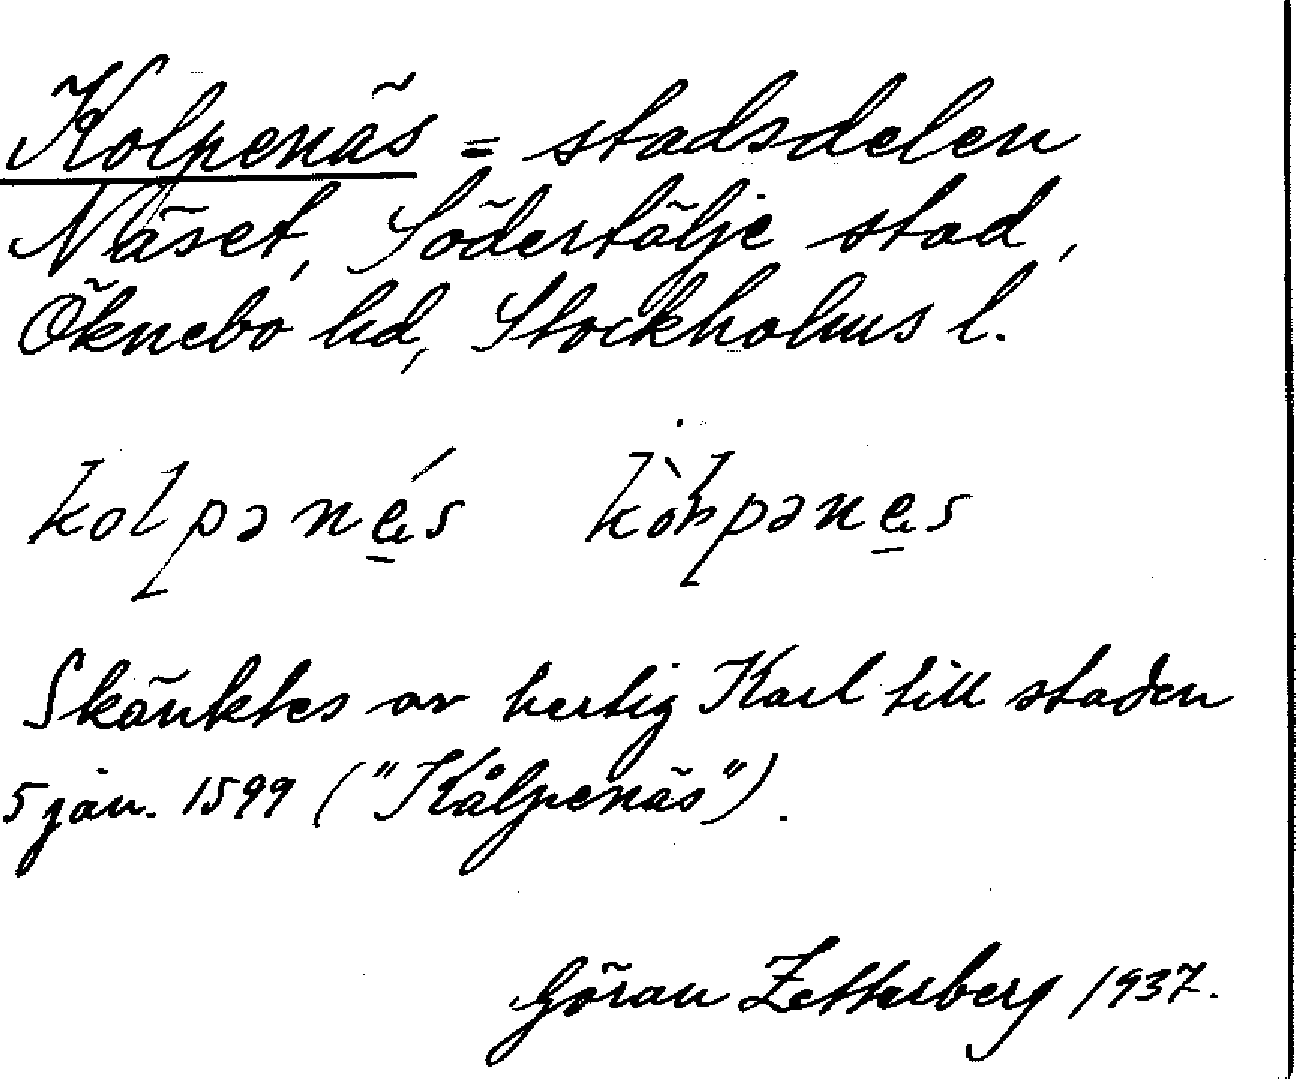 Kolpenäs = stadsdelen
Näset, Södertälje stad,
Öknebo hd, Stockholms l.
kolpəné̱s kòɫpəne̱s
Skänktes av hertig Karl till staden
5 jan. 1599 ("Kålpenäs").
Göran Zetterberg 1937.